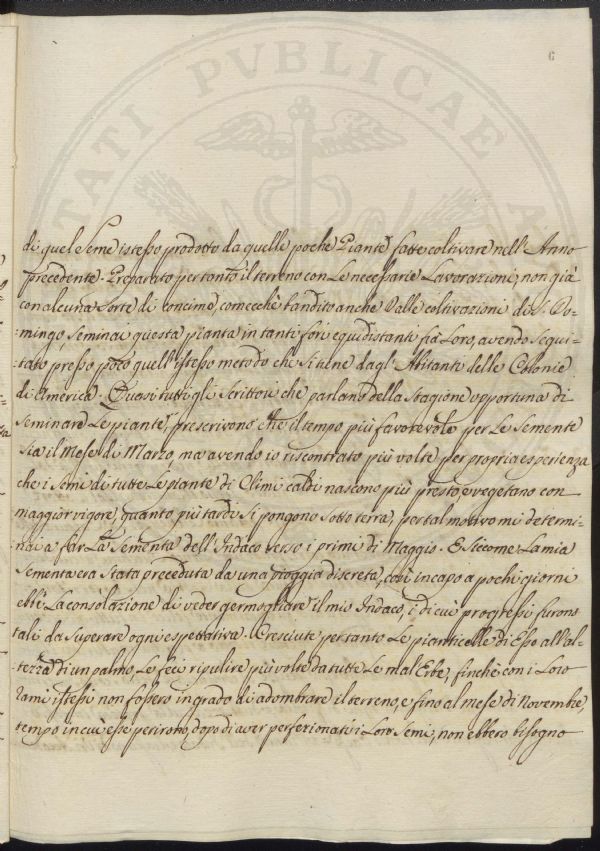 TATI PVBLICAE
6
di quel Seme istesso prodotto da quelle poche Piante fatte coltivare nell' Anno
precedente. Preparato pertanto il terreno con Le necessarie Lavorazioni, non già
con alcuna Sorte di concime, comecchè bandito anche dalle coltivazioni di S. Do-
mingo, Seminai questa pianta in tanti fori equidistanti frà Loro, avendo Segui-
tato presso poco quell'istesso metodo che si tiene dagl' Abitanti delle Colonie
di America. Quasi tutti gli Scrittori che parlano della Stagione opportuna di
Seminare Le piante prescrivono che il tempo più favorevole per Le Semente
Sia il Mese di Marzo, ma avendo io riscontrato più volte per propria esperienza
che i Semi di tutte Le piante di Climi caldi nascono più presto, e vegetano con
maggior vigore, quanto più tardi Si pongono Sotto terra, per tal motivo mi determi-
nai a far La Sementa dell' Indaco verso i primi di Maggio. E Siccome La mia
Sementa era Stata preceduta da una pioggia discreta, così in capo a pochi giorni
ebbi La consolazione di veder germogliare il mio Indaco, i di cui progressi furono
tali da Superare ogni espettativa. Cresciute pertanto Le pianticelle di Esso all'al-
tezza di un palmo, Le feci ripulire più volte da tutte Le mal'Erbe, finchè con i Loro
rami istessi non fossero in grado di adombrare il terreno, e fino al mese di Novembre,
tempo in cui esse perirono, dopo di aver perfezionati i Loro Semi, non ebbero bisogno